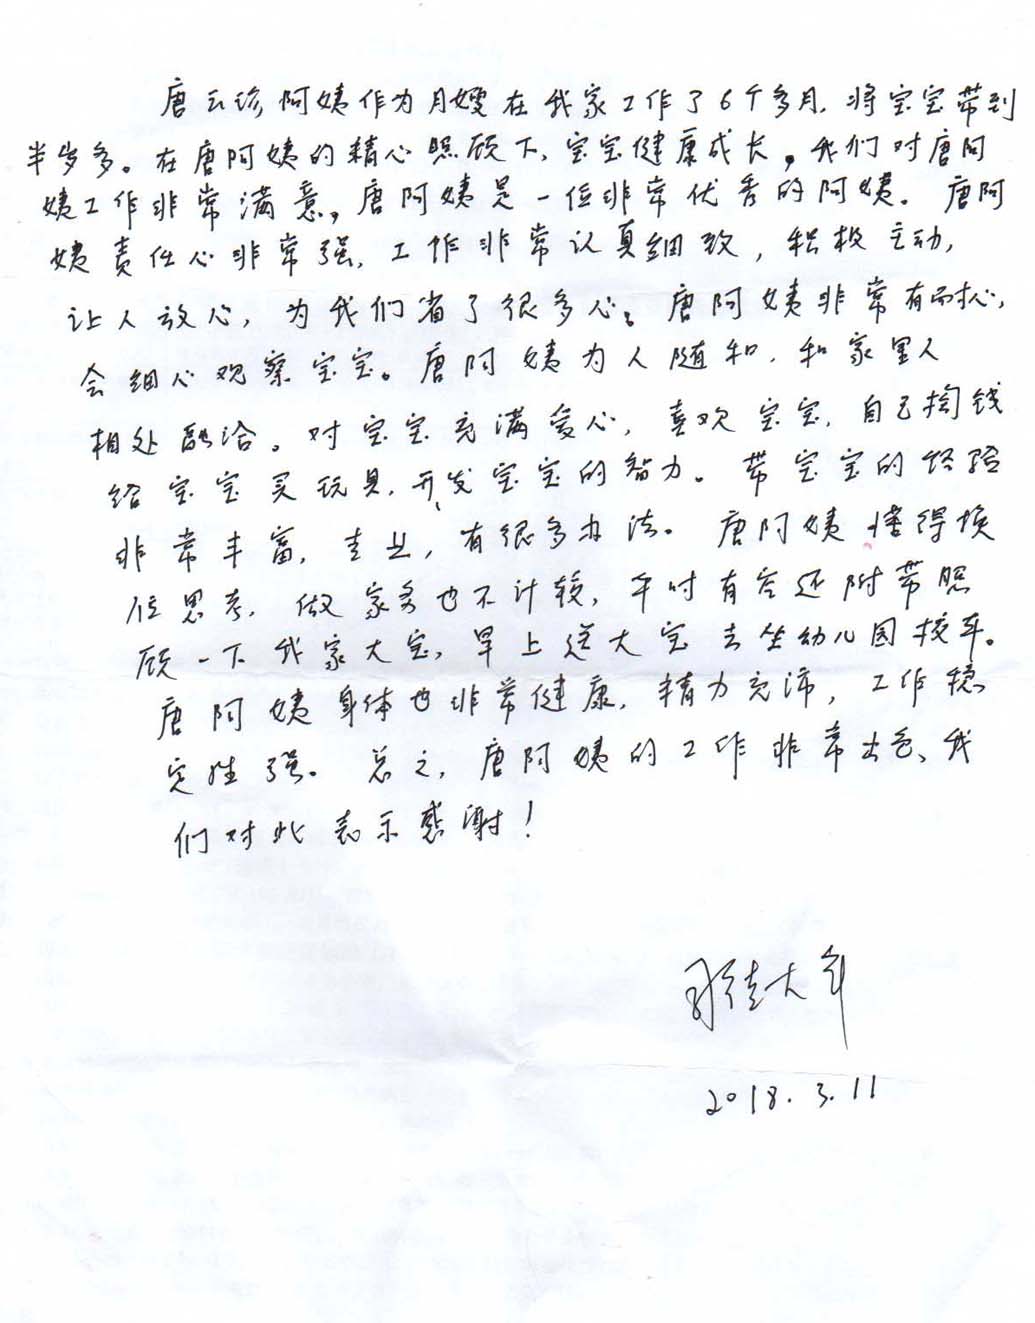 唐云珍阿姨作为月嫂在我家工作了6个多月，将宝宝带到
半岁多。在唐阿姨的精心照顾下，宝宝健康成长，我们对唐阿
姨工作非常满意，唐阿姨是一位非常优秀的阿姨。唐阿
姨责任心非常强，工作非常认真细致，积极主动，
让人放心，为我们省了很多心。唐阿姨非常有耐心，
会细心观察宝宝。唐阿姨为人随和，和家里人
相处融洽。对宝宝充满爱心，喜欢宝宝，自己掏钱
给宝宝买玩具，开发宝宝的智力。带宝宝的经验
非常丰富，专业，有很多办法。唐阿姨懂得换
位思考，做家务也不计较，平时有空还附带照
顾一下我家大宝，早上送大宝去坐幼儿园校车。
唐阿姨身体也非常健康，精力充沛，工作稳
定性强。总之，唐阿姨的工作非常出色、我
们对此表示感谢！
2018.3.11